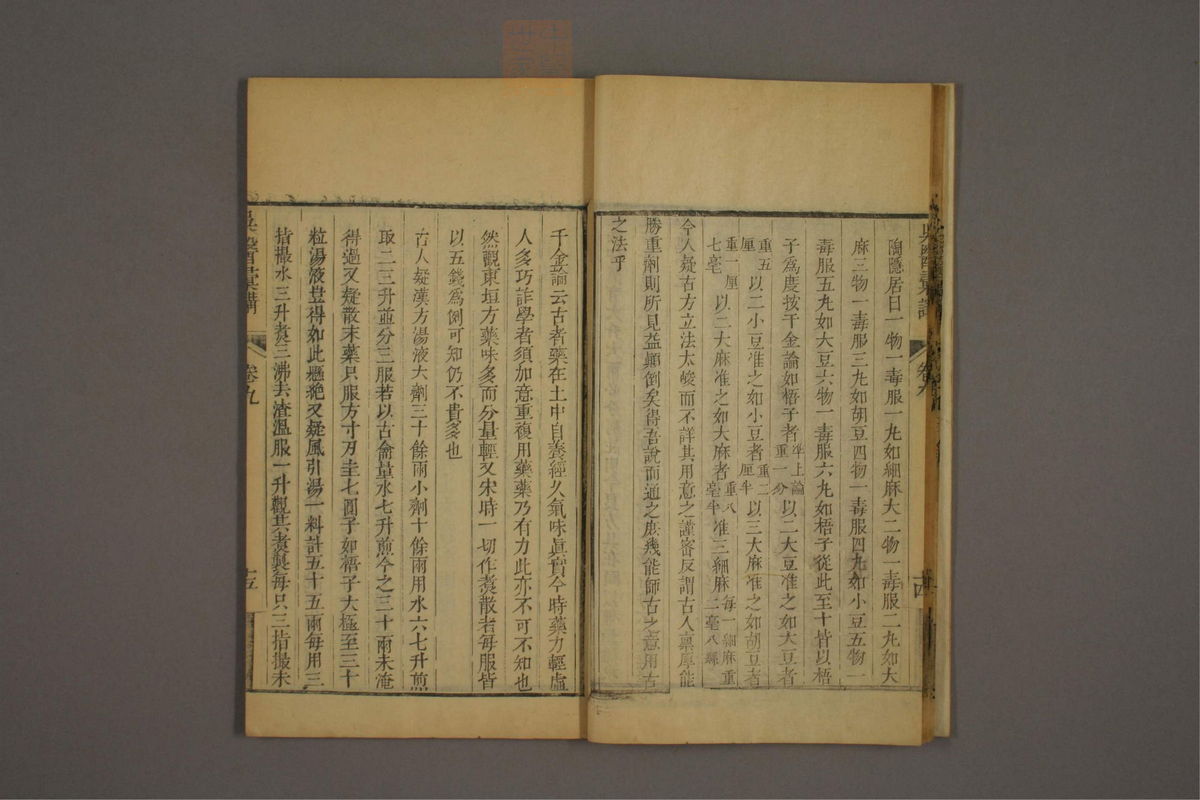 陶隱居曰一物一毒服一丸如細麻大二物一毒服二丸如大
麻三物一毒服三丸如胡豆四物一毒服四丸如小豆五物一
毒服五丸如大豆六物一毒服六丸如梧子從此至十皆以梧
子爲度按千金論如梧子者準上論重一分以二大豆准之如大豆者
重五厘以二小豆准之如小豆者重二厘半以三大麻准之如胡豆者
重一厘七毫以二大麻准之如大麻者重八毫半准三細麻每一細麻重二毫八絲
今人疑古方立法太峻而不詳其用意之謹密反謂古人稟厚能
勝重劑則所見益顚倒矣得吾說而通之庶幾能師古之意用古
之法乎
千金論云古者藥在土中自養經久氣味眞實今時藥力輕虛
人多巧詐學者須加意重複用藥藥乃有力此亦不可不知也
然觀東垣方藥味多而分量輕又宋時一切作煑散者每服皆
以五錢爲例可知仍不貴多也
古人疑漢方湯液大劑三十餘兩小劑十餘兩用水六七升煎
取二三升並分三服若以古龠量水七升煎今之三十兩未淹
得過又疑散末藥只服方寸刀圭七圓子如梧子大極至三十
粒湯液豈得如此懸絶又疑風引湯一料計五十五兩每用三
指撮水三升煑三沸去渣溫服一升觀其煑製每只三指撮未
吳醫彙講
卷九
十五